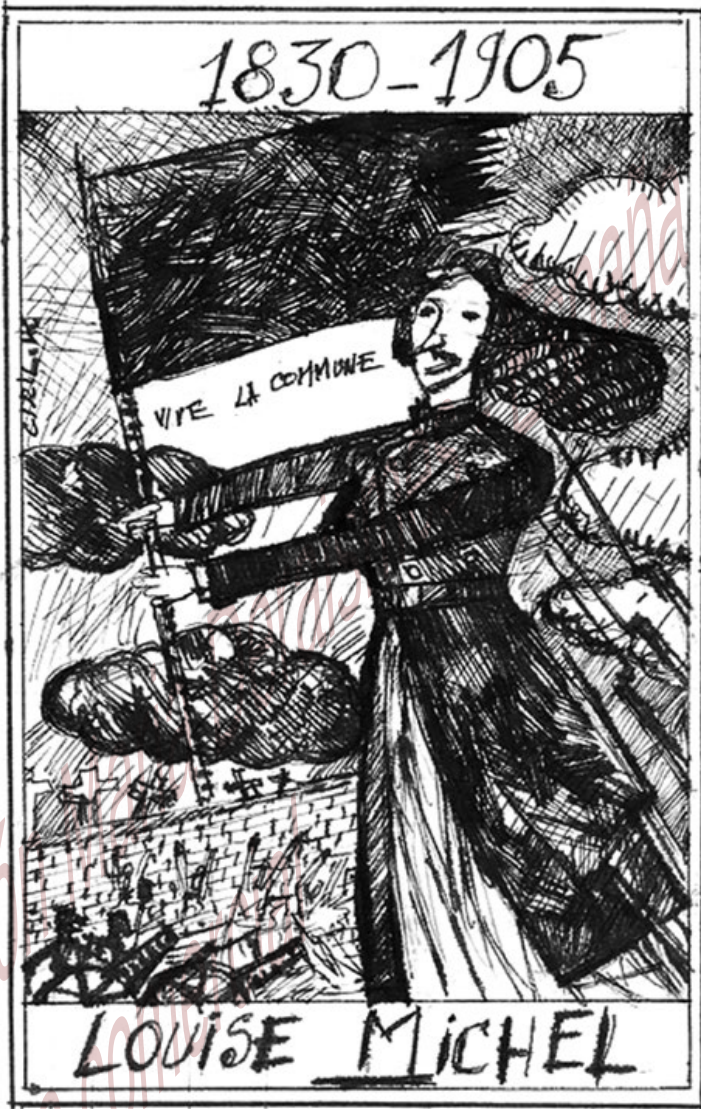 1830-1905
VIVE LA COMMUNE
LOUISE MICHEL